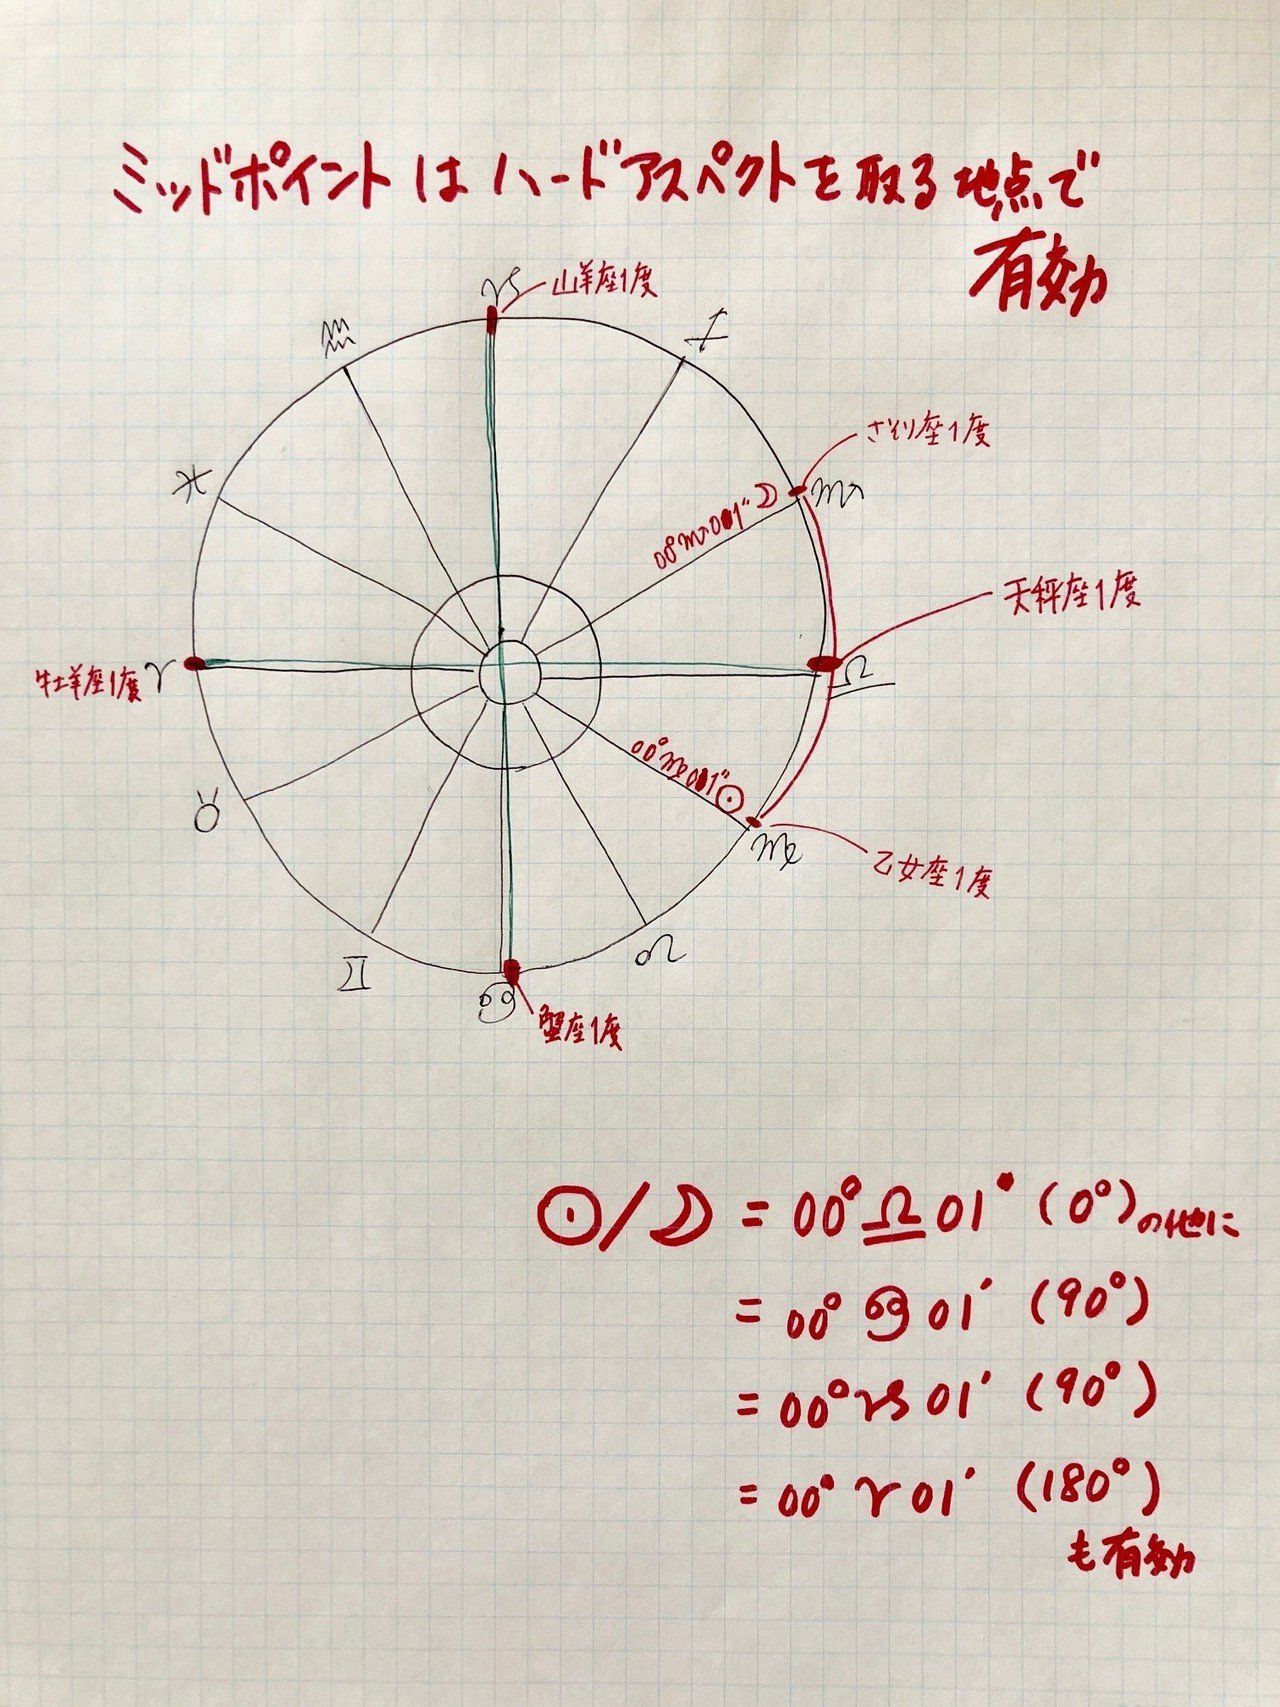 ミッドポイントはハードアスペクトを取る地点で
有効
♑ 山羊座1度
♒
♐
さそり座1度
♓
♏
00°♏001" ☽
天秤座1度
牡羊座1度 ♈
♎
00°♍001" ☉
♉
♍
乙女座1度
♊
♌
♋
蟹座1度
☉/☽ = 00°♎01' (0°)の他に
= 00°♋01' (90°)
= 00°♑01' (90°)
= 00°♈01' (180°)
も有効